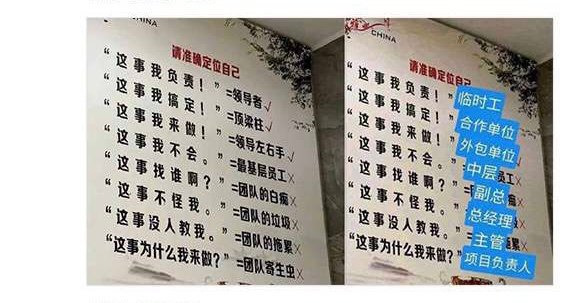 CHINA
请准确定位自己
“这事我负责！”=领导者✓
“这事我搞定！”=顶梁柱✓
“这事我来做！”=领导左右手✓
“这事我不会。”=最基层员工×
“这事找谁啊？”=团队的白痴×
“这事不怪我。”=团队的垃圾×
“这事没人教我。”=团队的拖累×
“这事为什么我来做？”=团队寄生虫×
CHINA
请准确定位自己
“这事我负责！”临时工
“这事我搞定！”合作单位
“这事我来做！”外包单位✓
“这事我不会。”中层员工×
“这事找谁啊？”副总
“这事不怪我。”总经理
“这事没人教我。”主管
“这事为什么我来做？”项目负责人